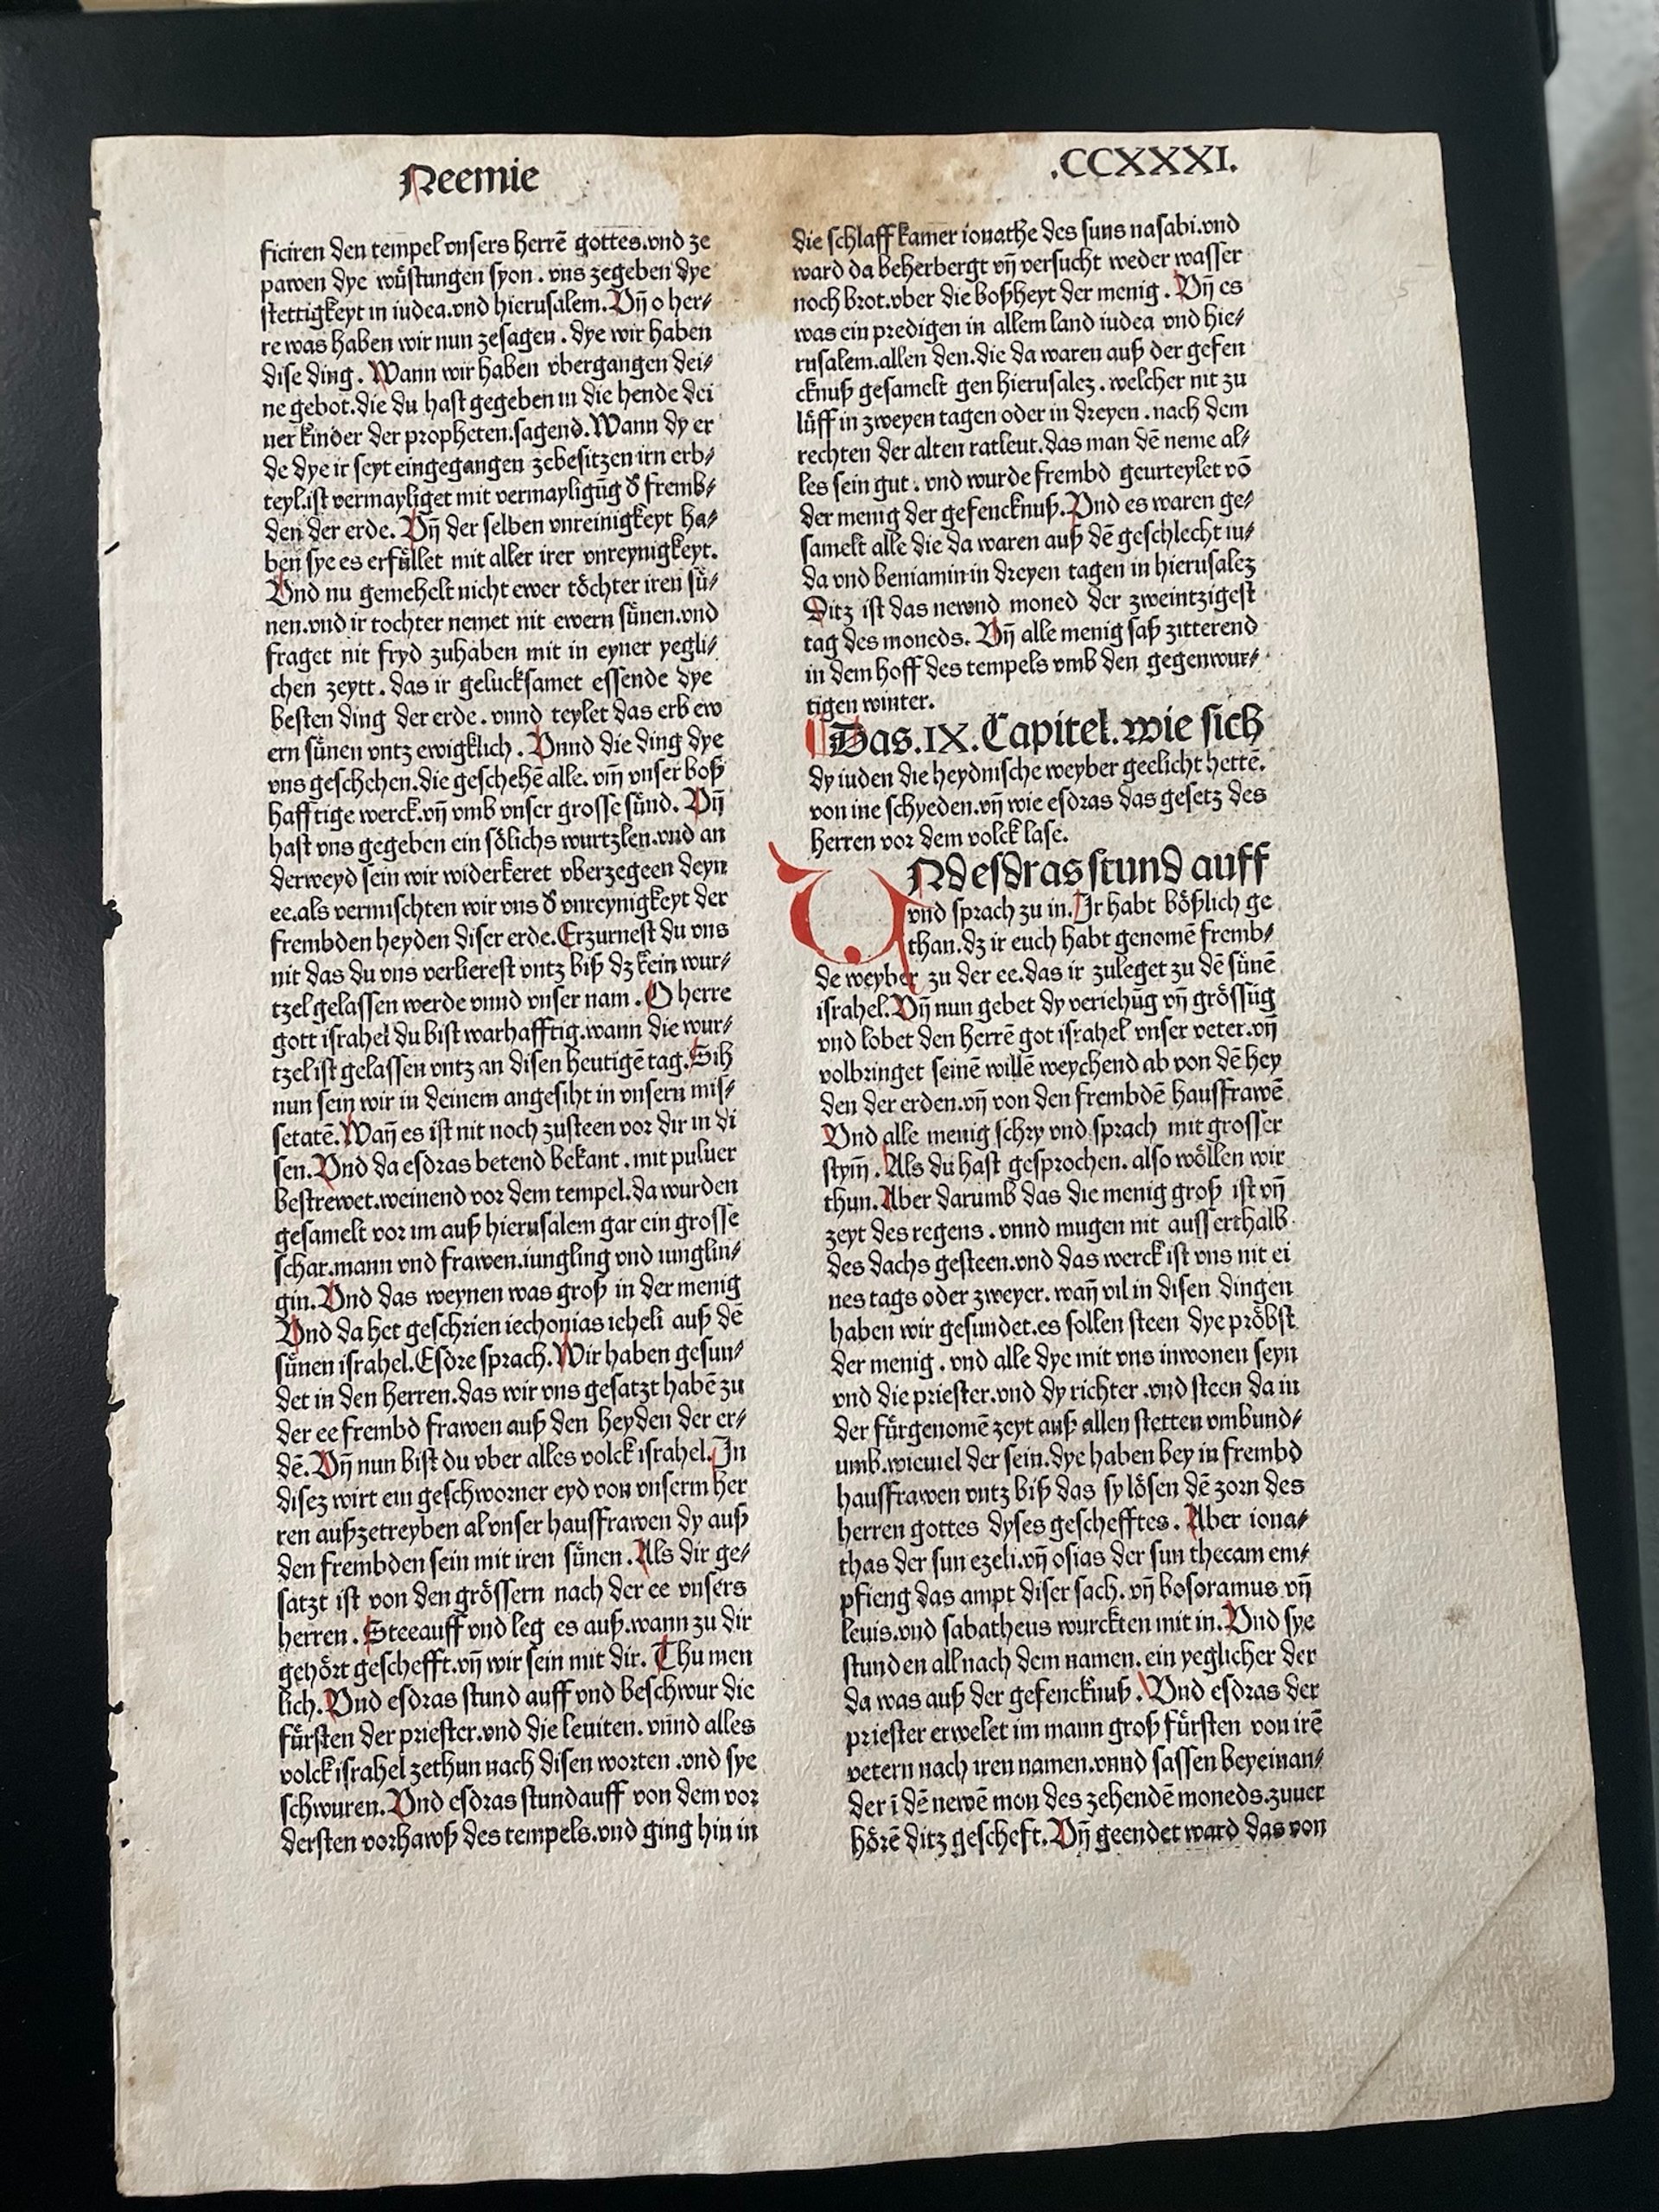 Neemie
.CCXXXI.
ficiren den tempel vnsers herrē gottes.vnd ze
pawen dye wuͤstungen syon. vns zegeben dye
stettigkeyt in iudea.vnd hierusalem. Vñ o her⸗
re was haben wir nun zesagen. dye wir haben
dise ding. Wann wir haben vbergangen dei⸗
ne gebot.die du hast gegeben in die hende dei
ner kinder der propheten.sagend.Wann dy er
de dye ir seyt eingegangen zebesitzen irn erb⸗
teyl.ist vermayliget mit vermayligūg d̕ fremb⸗
den der erde. Vñ der selben vnreinigkeyt ha⸗
ben sye es erfuͤllet mit aller irer vnreynigkeyt.
Vnd nu gemehelt nicht ewer toͤchter iren suͤ⸗
nen.vnd ir tochter nemet nit ewern suͤnen.vnd
fraget nit fryd zuhaben mit in eyner yegli⸗
chen zeytt. das ir gelucksamet essende dye
besten ding der erde. vnnd teylet das erb ew
ern suͤnen vntz ewigklich. Vnnd die ding dye
vns geschehen.die geschehē alle. vm̄ vnser boß
hafftige werck.vñ vmb vnser grosse suͤnd. Vñ
hast vns gegeben ein soͤlichs wurtzlen.vnd an
derweyd sein wir widerkeret vberzegeen deyn
ee.als vermischten wir vns d̕ vnreynigkeyt der
frembden heyden diser erde.Erzurnest du vns
nit das du vns verlierest vntz biß dz kein wur⸗
tzel gelassen werde vnnd vnser nam. O herre
gott israhel du bist warhafftig.wann die wur⸗
tzel ist gelassen vntz an disen heutigē tag.Sih
nun sein wir in deinem angesiht in vnsern mis⸗
setatē.Wañ es ist nit noch zusteen vor dir in di
sen.Vnd da esdras betend bekant. mit puluer
bestrewet.weinend vor dem tempel.da wurden
gesamelt vor im auß hierusalem gar ein grosse
schar.mann vnd frawen.iungling vnd iunglin⸗
gin.Vnd das weynen was groß in der menig
Vnd da het geschrien iechonias icheli auß dē
suͤnen israhel.Esdre sprach.Wir haben gesun⸗
det in den herren.das wir vns gesatzt habē zu
der ee frembd frawen auß den heyden der er⸗
dē.Vñ nun bist du vber alles volck israhel.In
disez wirt ein geschworner eyd von vnserm her
ren außzetreyben al vnser haußfrawen dy auß
den frembden sein mit iren suͤnen.Als dir ge⸗
satzt ist von den groͤssern nach der ee vnsers
herren. Stee auff vnd leg es auß.wann zu dir
gehoͤrt geschefft.vñ wir sein mit dir. Thu men
lich.Vnd esdras stund auff vnd beschwur die
fuͤrsten der priester.vnd die leuiten. vnnd alles
volck israhel zethun nach disen worten.vnd sye
schwuren.Vnd esdras stundauff von dem vor
dersten vorhawß des tempels.vnd ging hin in
die schlaff kamer ionathe des suns nasabi.vnd
ward da beherbergt vñ versucht weder wasser
noch brot.vber die boßheyt der menig. Vñ es
was ein predigen in allem land iudea vnd hie⸗
rusalem.allen den.die da waren auß der gefen
cknuß gesamelt gen hierusalez. welcher nit zu
luͤff in zweyen tagen oder in dreyen. nach dem
rechten der alten ratleut.das man dē neme al⸗
les sein gut. vnd wurde frembd geurteylet vō
der menig der gefencknuß.Vnd es waren ge⸗
samelt alle die da waren auß dē geschlecht iu⸗
da vnd beniamin in dreyen tagen in hierusalez
Ditz ist das newnd moned der zweintzigest
tag des moneds. Vñ alle menig saß zitterend
in dem hoff des tempels vmb den gegenwur⸗
tigen winter.
Das.IX.Capitel.wie sich
dy iuden die heydnische weyber geelicht hettē.
von ine schyeden.vñ wie esdras das gesetz des
herren vor dem volck lase.
VNd esdras stund auff
vnd sprach zu in.Ir habt boͤßlich ge
than.dz ir euch habt genomē fremb⸗
de weyber zu der ee.das ir zuleget zu dē suͤnē
israhel.Vñ nun gebet dy veriehūg vñ groͤssūg
vnd lobet den herrē got israhel vnser veter.vñ
volbringet seinē willē weychend ab von dē hey
den der erden.vñ von den frembdē haußfrawē
Vnd alle menig schry vnd sprach mit grosser
stym̄. Als du hast gesprochen. also woͤllen wir
thun.Aber darumb das die menig groß ist vñ
zeyt des regens. vnnd mugen nit ausserthalb
des dachs gesteen.vnd das werck ist vns nit ei
nes tags oder zweyer. wañ vil in disen dingen
haben wir gesundet.es sollen steen dye proͤbst
der menig. vnd alle dye mit vns inwonen seyn
vnd die priester.vnd dy richter.vnd steen da in
der fuͤrgenomē zeyt auß allen stetten vmbund⸗
umb.wieuiel der sein.dye haben bey in frembd
haußfrawen vntz biß das sy loͤsen dē zorn des
herren gottes dyses gescheff​tes. Aber iona⸗
thas der sun ezeli.vñ osias der sun thecam em⸗
pfieng das ampt diser sach. vñ bosoramus vñ
leuis.vnd sabatheus wurckten mit in.Vnd sye
stunden all nach dem namen. ein yeglicher der
da was auß der gefencknuß. Vnd esdras der
priester erwelet im mann groß fuͤrsten von irē
vetern nach iren namen.vnnd sassen beyeinan⸗
der ī dē newē mon des zehendē moneds.zuuer
hoͤrē ditz gescheft.Vñ geendet ward das von